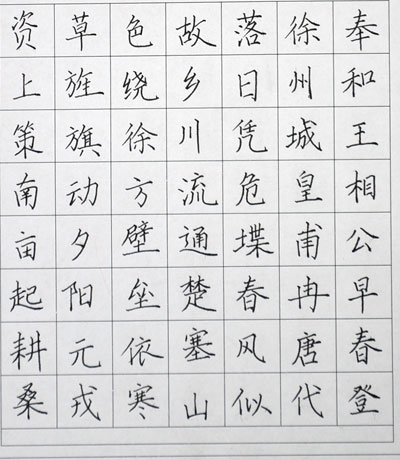 奉和王相公早春登
徐州城皇甫冉唐代
落日凭危堞春风似
故乡川流通楚塞山
色绕徐方壁垒依寒
草旌旗动夕阳元戎
资上策南亩起耕桑